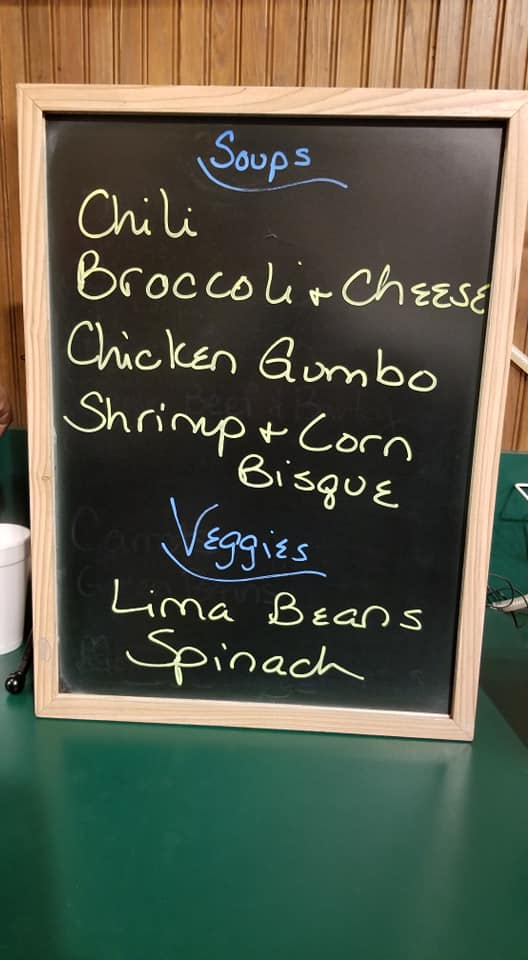 Soups
Chili
Broccoli + Cheese
Chicken Gumbo
Shrimp + Corn
Bisque
Veggies
Lima Beans
Spinach